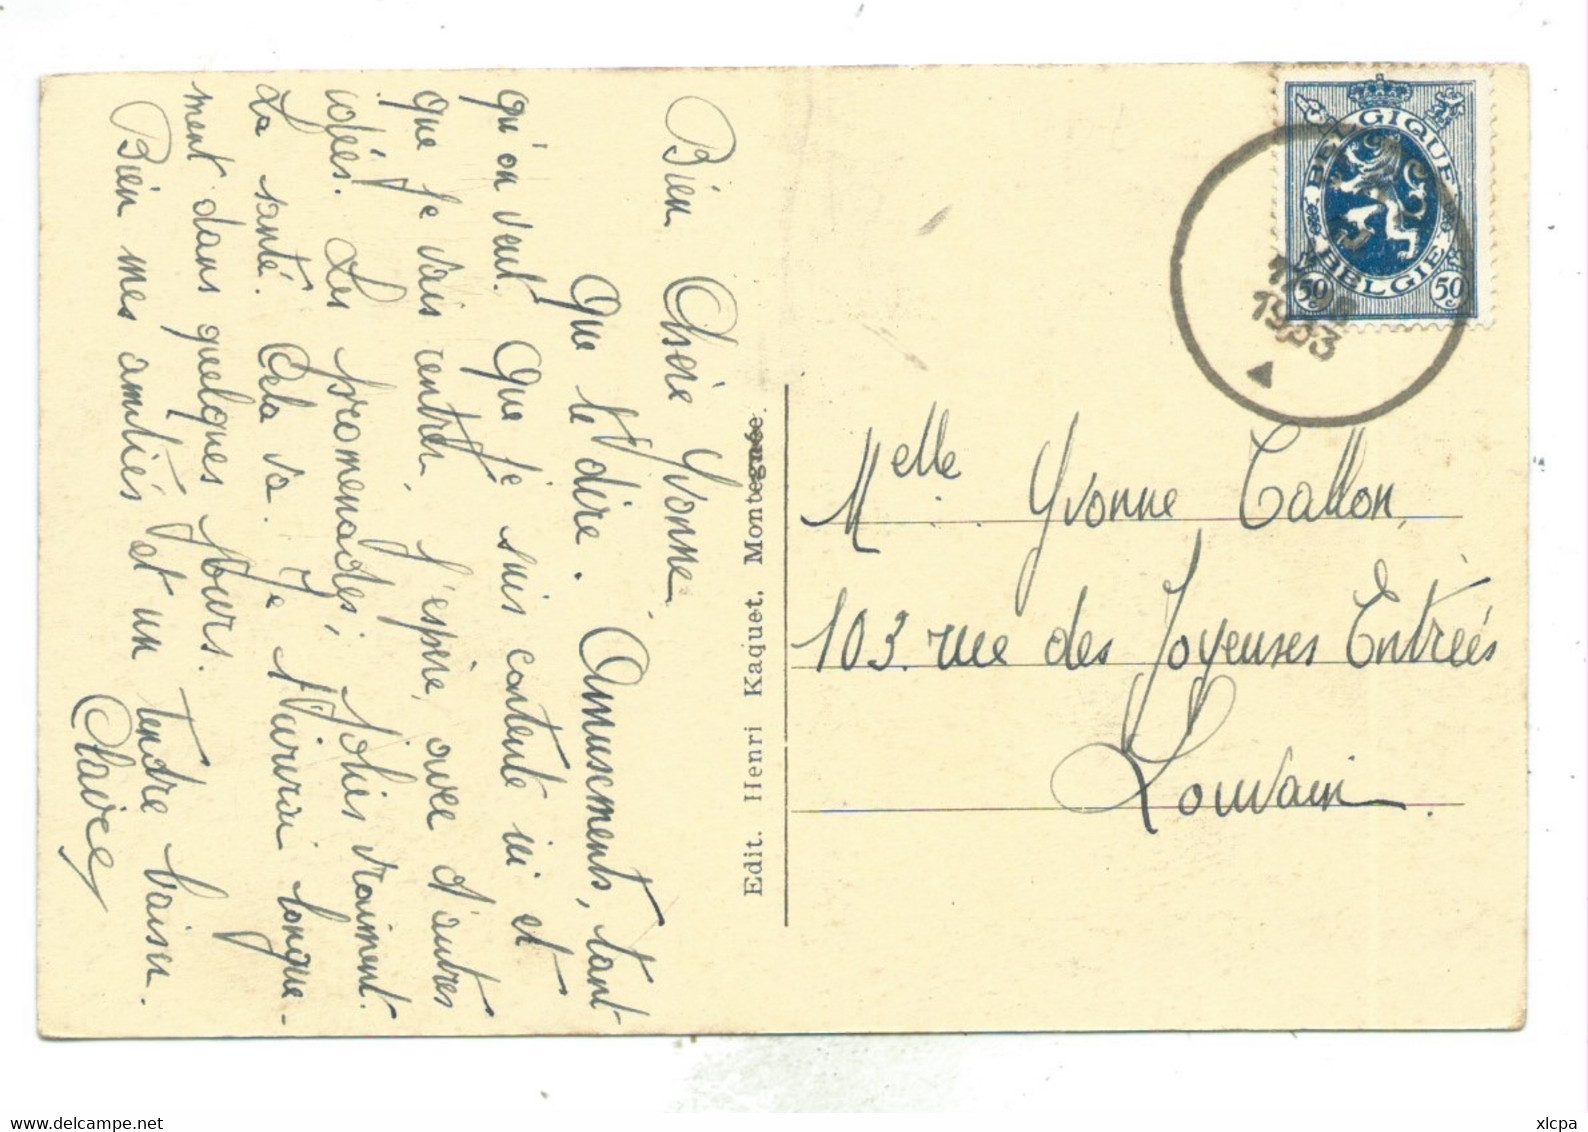 Bien Chère Yvonne.
Que te dire. Amusements, tant
qu'on veut. Que je suis contente ici et
que je vais rentrer, j'espère, avec d'autres
idées. Les promenades, jolies vraiment.
La santé. Cela va. Je t'écrirai longue-
ment dans quelques jours.
Bien mes amitiés et un tendre baiser.
Claire
Edit. Henri Kaquet, Montegnée.
BELGIQUE
BELGIE
50 50
1933
Melle Yvonne Tallon,
103. rue des Joyeuses Entrées
Louvain.
xlcpa